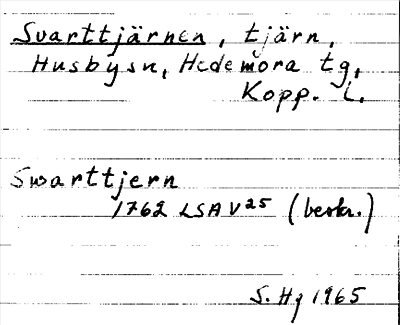 Svarttjärnen, tjärn,
Husbysn, Hedemora tg,
Kopp. l.
Swarttjern
1762 LSA V25 (beskr.)
S. Hg 1965